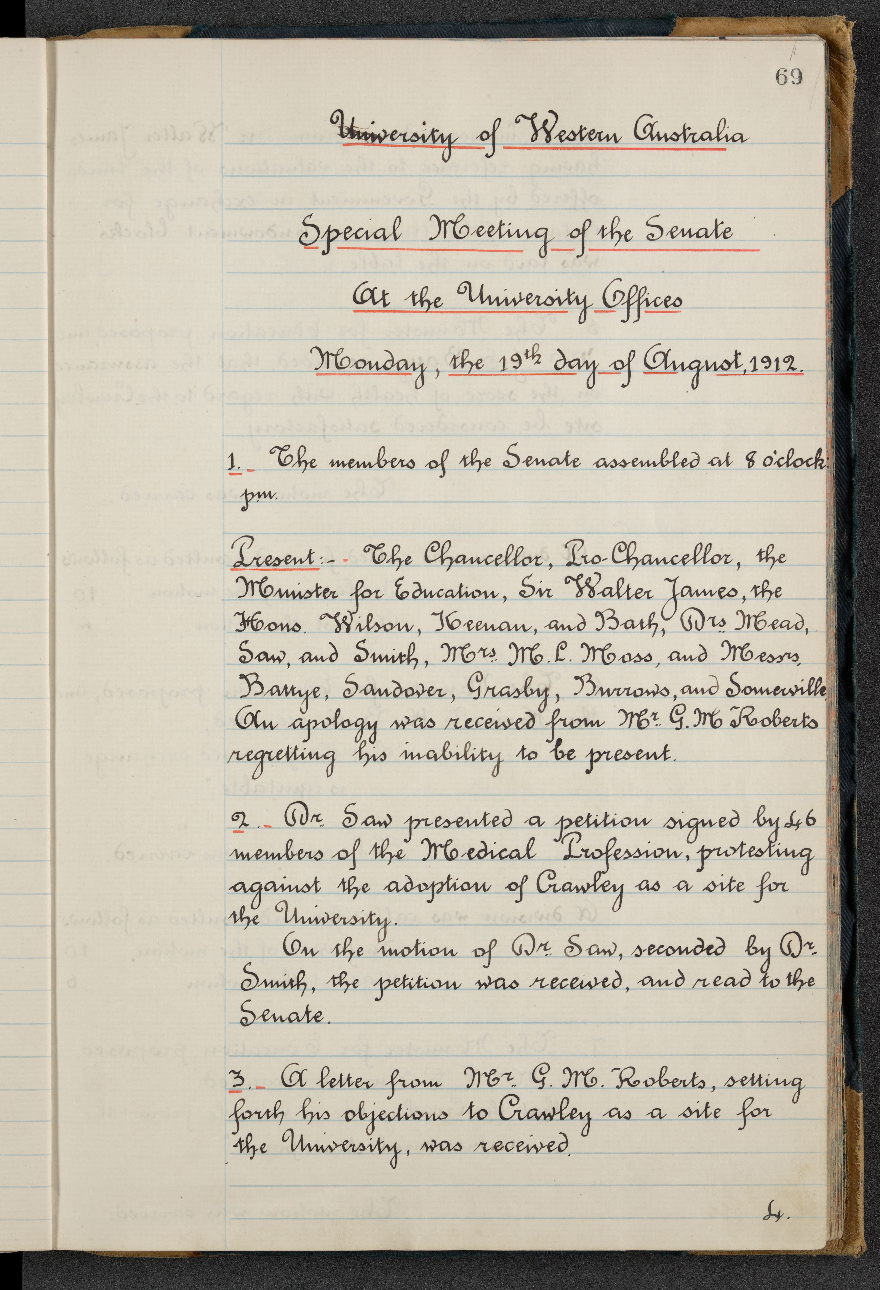 69
University of Western Australia
Special Meeting of the Senate
At the University Offices
Monday, the 19th day of August, 1912.
1. - The members of the Senate assembled at 8 o'clock
pm.
Present:- - The Chancellor, Pro-Chancellor, the
Minister for Education, Sir Walter James, the
Hons. Wilson, Keenan, and Bath, Drs Mead,
Saw, and Smith, Mrs. M. L. Moss, and Messrs.
Battye, Sandover, Grasby, Burrows, and Somerville.
An apology was received from Mr. G. M Roberts
regretting his inability to be present.
2. - Dr. Saw presented a petition signed by 46
members of the Medical Profession, protesting
against the adoption of Crawley as a site for
the University.
On the motion of Dr. Saw, seconded by Dr.
Smith, the petition was received, and read to the
Senate.
3. - A letter from Mr. G. M. Roberts, setting
forth his objections to Crawley as a site for
the University, was received.
4.